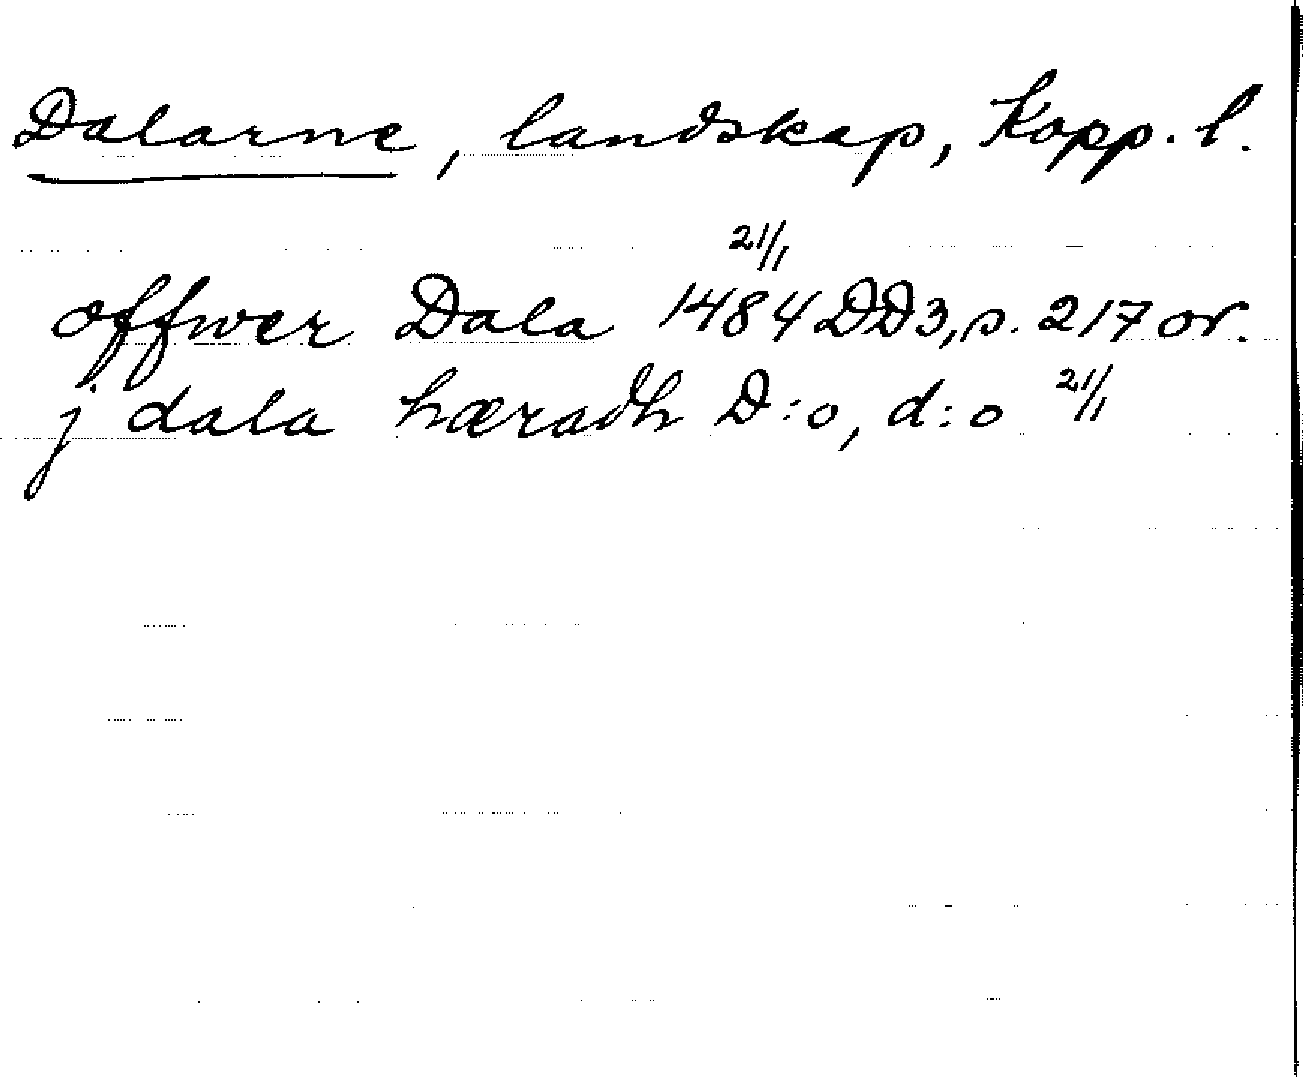 Dalarne, landskap, Kopp. l.
offwer Dala 1484 21/1 DD3, s. 217 or.
j dala hæradh D:o, d:o 21/1